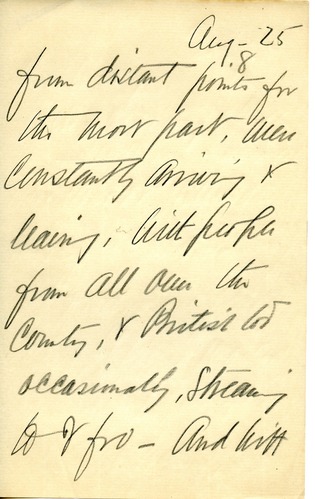 Aug - 25
8
from distant points for
the most part, were
constantly arriving &
leaving, with people
from all over the
Country, & British too
occasionally, streaming
to & fro - And with